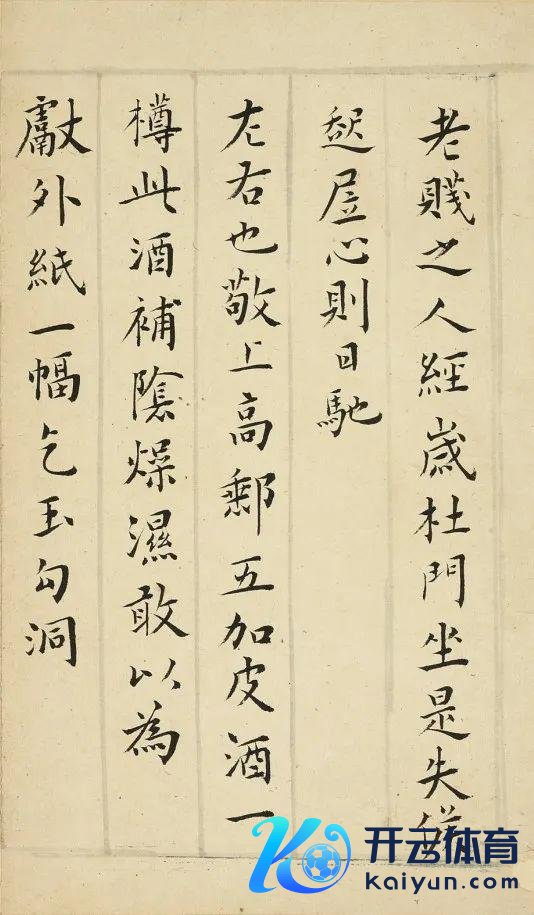 老賤之人經歲杜門坐是失
起居心則日馳
左右也敬上高郵五加皮酒一
樽此酒補陰燥濕敢以為
獻外紙一幅乞玉勾洞
开云体育
kaiyun.com